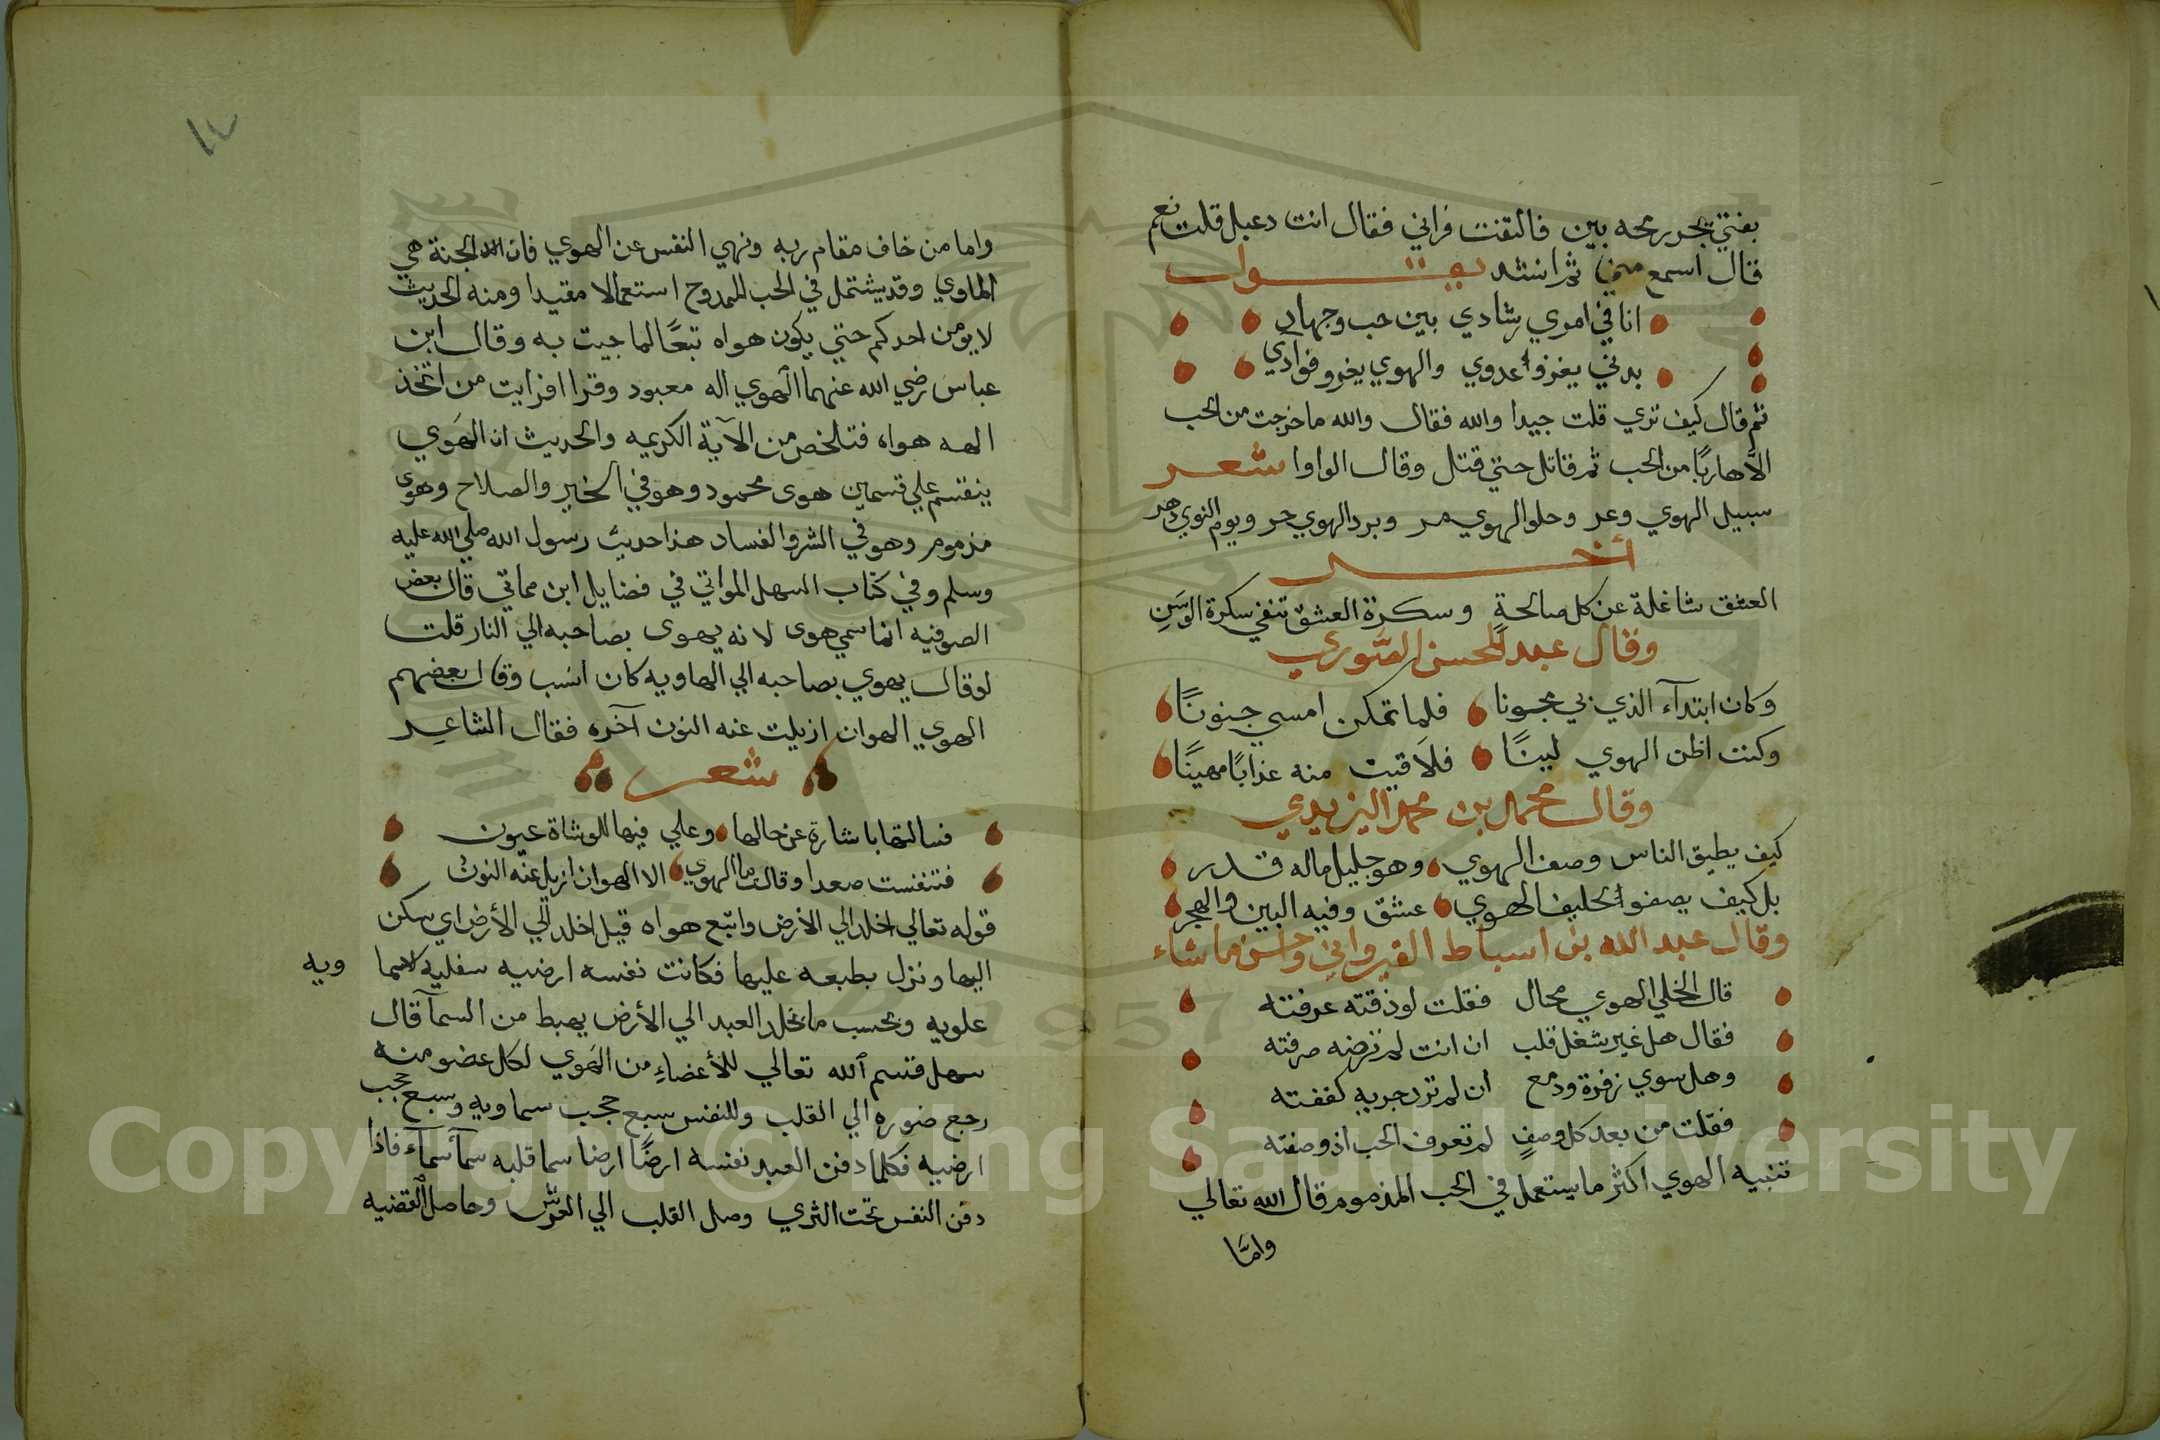 بفتي يجر رمحه بين فالتفت فراني فقال انت دعبل قلت نعم
قال اسمع مني ثم انشد يقول
انا في امري رشادي بين حب وجهاد
بدني يغزوا عدوي والهوي يغزو فوادي
ثم قال كيف تري قلت جيدا والله فقال والله ما خرجت من الحب
الا هاربًا من الحب ثم قاتل حتي قتل وقال الواوا شعر
سبيل الهوي وعر وحلو الهوي مر وبرد الهوي حر ويوم النوي دهر
آخر
العشق شاغلة عن كل صالحةٍ وسكرة العشق تنفي سكرة الوسَنِ
وقال عبد المحسن الصوري
وكان ابتدآء الذي بي مجونا فلما تمكن امسي جنونًا
وكنت اظن الهوي لينًا فلاَقيت منه عذابًا مهينًا
وقال محمد بن محمد اليزيدي
كيف يطيق الناس وصف الهوي وهو جليل ماله قدر
بل كيف يصفوا لحليف الهوي عشق وفيه البين والهجر
وقال عبد الله بن اسباط القيرواني وحسن ما شاء
قال الخلي الهوي محال فقلت لو ذقته عرفته
فقال هل غير شغل قلب ان انت لم ترضه صرفته
وهل سوي زفرة ودمع ان لم ترد جريه كففته
فقلت من بعد كل وصفٍ لم تعرف الحب اذ وصفته
تنبيه الهوي اكثر ما يستعمل في الحب المذموم قال الله تعالي
وامَّا
واما من خاف مقام ربه ونهي النفس عن الهوي فان الجنة هي
الماوي وقد يشتمل في الحب الممدوح استعمالا مقيدا ومنه الحديث
لا يومن احدكم حتي يكون هواه تبعًا لما جيت به وقال ابن
عباس رضي الله عنهما الهوي اله معبود وقرا افرايت من اتخذ
الهه هواه فتلخص من الآية الكريمه والحديث ان الهَوي
ينقسم علي قسمين هوى محمود وهو في الخير والصلاح وهوى
مذموم وهو في الشر والفساد هذا حديث رسول الله صلي الله عليه
وسلم وفي كتاب السهل المواتي في فضايل ابن مماتي قال بعض
الصوفيه انما سمي هوى لانه يهوى بصاحبه الي النار قلت
لو قال يهوي بصاحبه الي الهاويه كان انسب وقال بعضهم
الهوي الهوان ازيلت عنه النون آخره فقال الشاعر
شعر
فسالتها باشارة عن حالها وعلي فيها للوشاة عيون
فتنفست صعدا وقالت ما الهوي الا الهوان ازيل عنه النون
قوله تعالي اخلد الي الارض واتبع هواه قيل اخلد الي الأرض اي سكن
اليها ونزل بطبعه عليها فكانت نفسه ارضيه سفليه لا سما
ويه
علويه وبحسب ما يخلد العبد الي الأرض يهبط من السمآ قال
سهل قسم الله تعالي للأعضاءِ من الهَوي لكل عضو منه
رجع ضوره الي القلب وللنفس سبع حجب سماويه وسبع حجب
ارضيه فكلما دفن العبد نفسه ارضًا ارضا سما قلبه سمآ سمآء فاذا
دفن النفس تحت الثري وصل القلب الي العرش وحاصل القضيه
Copyright © King Saud University
1957